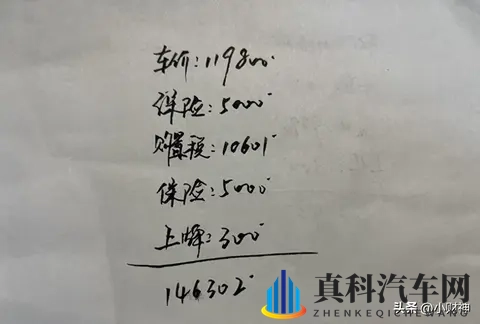 车价:119800
保险:5000
购置税:10601
保险:5000
上牌:300
146302
真科汽车网
ZHENKEQICHEWANG
头条 @小财神